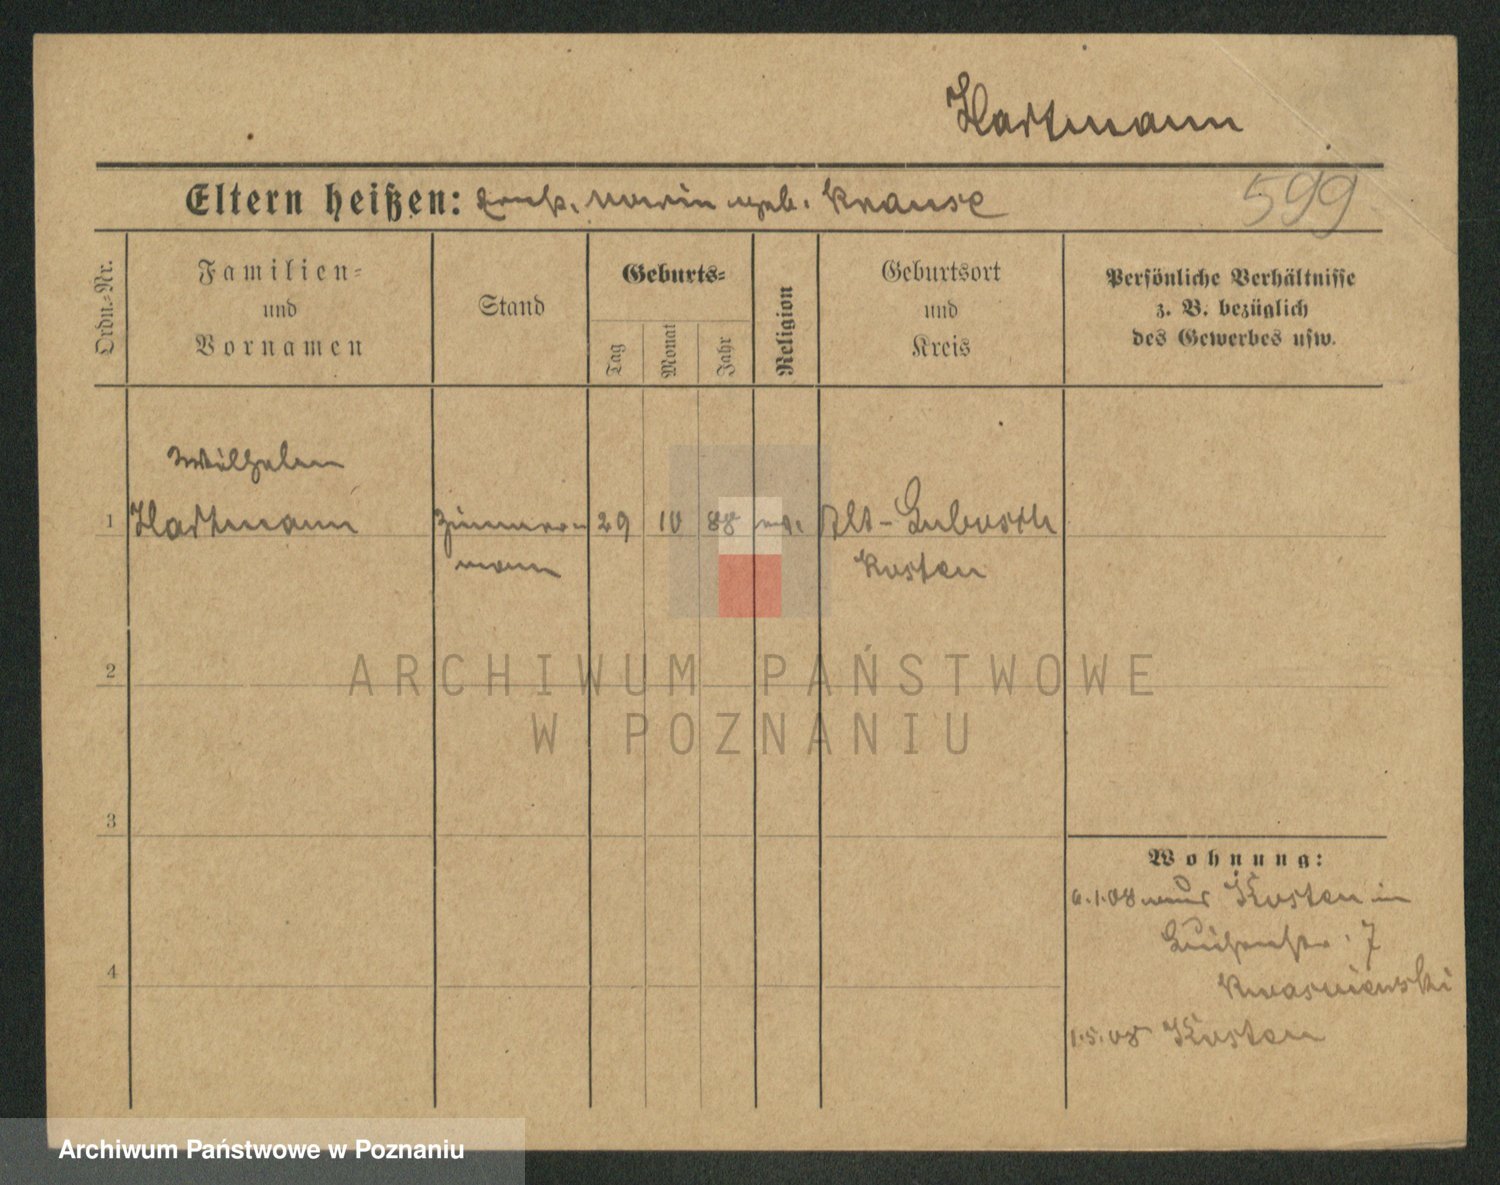 Hartmann
Eltern heißen: Ernst. Marie geb. Krause
599
Ordn.=Nr.
Familien=
und
Vornamen
Stand
Geburts=
Tag
Monat
Jahr
Religion
Geburtsort
und
Kreis
Persönliche Verhältnisse
z. B. bezüglich
des Gewerbes usw.
Wilhelm
1 Hartmann Zimmer 29 10 88 Alt-Lubosch
mann Kosten
ARCHIWUM PAŃSTWOWE
2
W POZNANIU
3
Wohnung:
6.1.08 aus Kosten in
4
Luisenstr. 7
Kwasniewski
1.5.08 Kosten
Archiwum Państwowe w Poznaniu